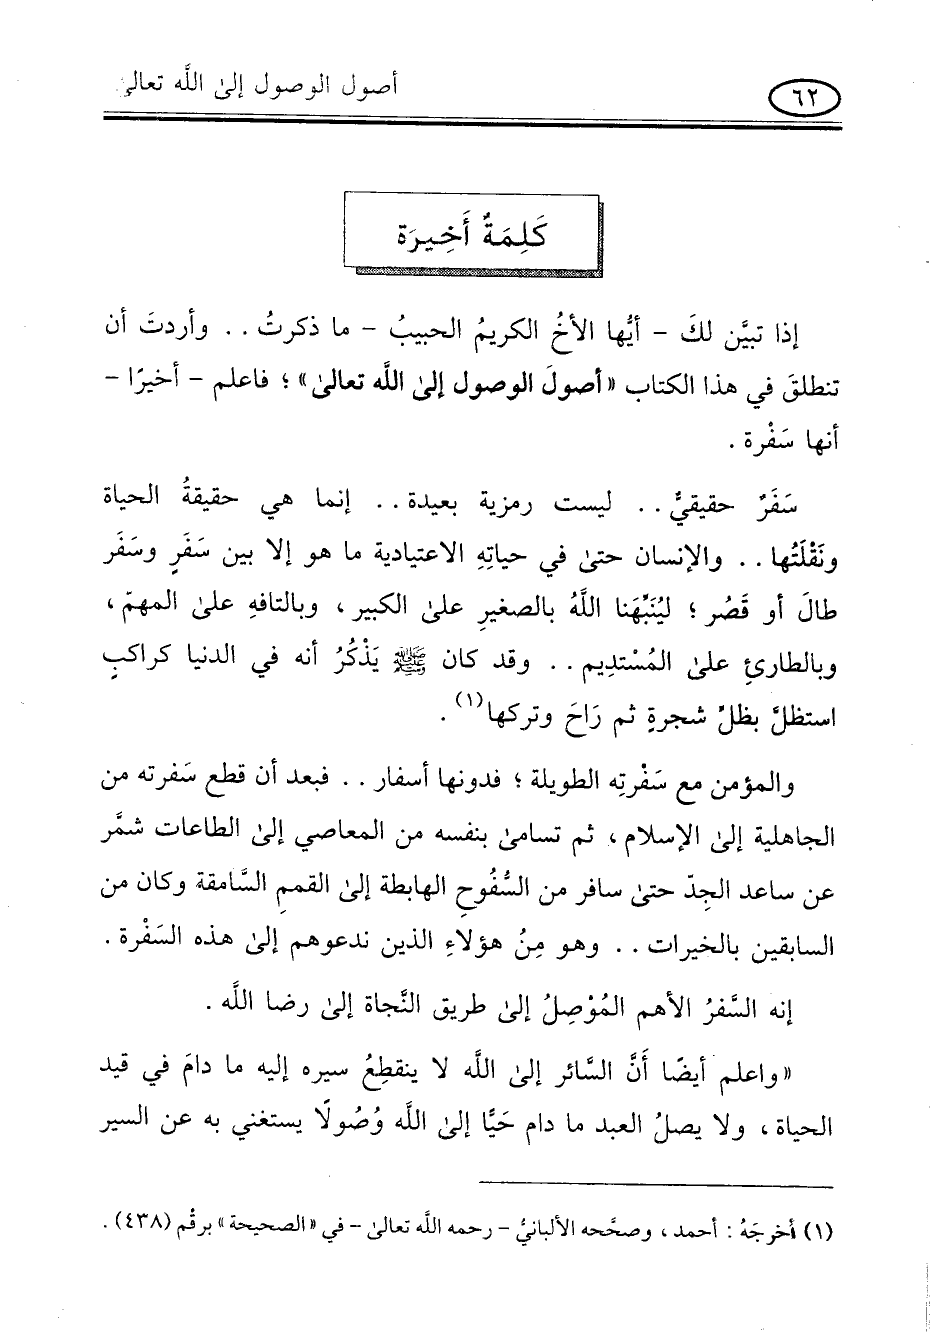 ٦٢
أصول الوصول إلىٰ اللَّه تعالىٰ
كَلِمَةٌ أَخِيرَة
إذا تبيَّن لكَ – أيُّها الأخُ الكريمُ الحبيبُ – ما ذكرتُ . . وأردتَ أن
تنطلقَ في هذا الكتاب «أصولَ الوصول إلىٰ اللَّه تعالىٰ» ؛ فاعلم – أخيرًا –
أنها سَفْرة .
سَفَرٌ حقيقيٌّ . . ليست رمزية بعيدة . . إنما هي حقيقةُ الحياة
ونَقْلَتُها . . والإنسان حتىٰ في حياتِهِ الاعتيادية ما هو إلا بين سَفَرٍ وسَفَر
طالَ أو قَصُر ؛ ليُنَبِّهَنا اللَّهُ بالصغيرِ علىٰ الكبير ، وبالتافهِ علىٰ المهمّ ،
وبالطارئِ علىٰ المُسْتدِيم . . وقد كان ﷺ يَذْكُرُ أنه في الدنيا كراكبٍ
استظلَّ بظلِّ شجرةٍ ثم رَاحَ وتركها(١) .
والمؤمن مع سَفْرتِه الطويلة ؛ فدونها أسفار . . فبعد أن قطع سَفرته من
الجاهلية إلىٰ الإسلام ، ثم تسامىٰ بنفسه من المعاصي إلىٰ الطاعات شمَّر
عن ساعد الجِدّ حتىٰ سافر من السُّفُوحِ الهابطة إلىٰ القممِ السَّامقة وكان من
السابقين بالخيرات . . وهو مِنُ هؤلاءِ الذين ندعوهم إلىٰ هذه السَفْرة .
إنه السَّفرُ الأهم المُوْصِلُ إلىٰ طريق النَّجاة إلىٰ رضا اللَّه .
«واعلم أيضًا أَنَّ السَّائر إلىٰ اللَّه لا ينقطِعُ سيره إليه ما دامَ في قيد
الحياة ، ولا يصلُ العبد ما دام حَيًّا إلىٰ اللَّه وُصُولًا يستغني به عن السير
(١) أخرجَهُ : أحمد ، وصحَّحه الألبانيُّ – رحمه اللَّه تعالىٰ – في «الصحيحة» برقْم (٤٣٨) .